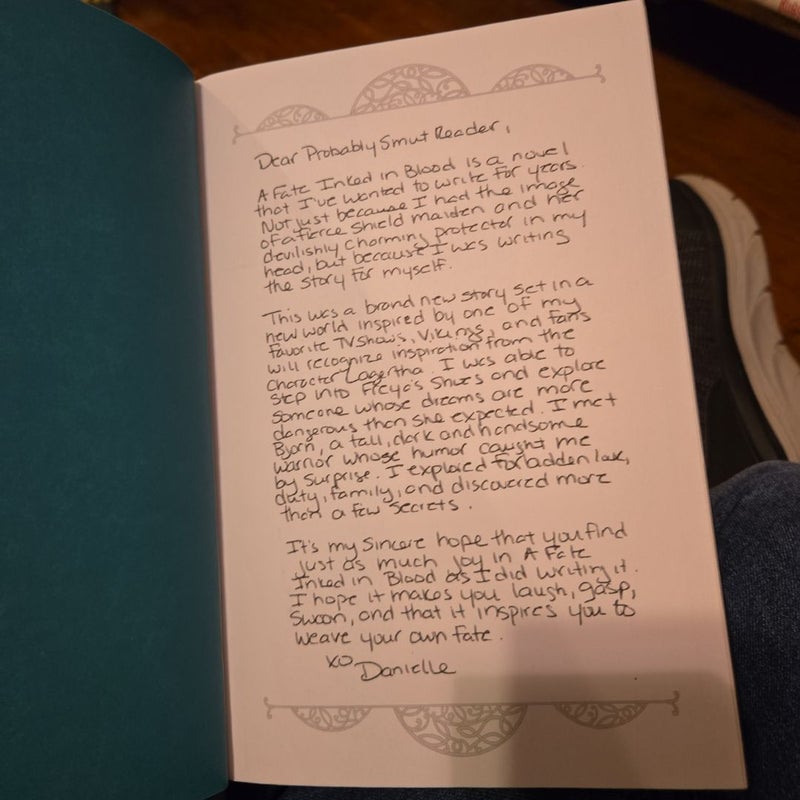 Dear Probably Smut Reader,
A Fate Inked in Blood is a novel
that I've wanted to write for years.
Not just because I had the image
of a fierce shield maiden and her
devilishly charming protector in my
head, but because I was writing
the story for myself.
This was a brand new story set in a
new world inspired by one of my
favorite TV shows, Vikings, and fans
will recognize inspiration from the
character Lagertha. I was able to
step into Freya's shoes and explore
someone whose dreams are more
dangerous than she expected. I met
Bjorn, a tall, dark and handsome
warrior whose humor caught me
by surprise. I explored forbidden love,
duty, family, and discovered more
than a few secrets.
It's my sincere hope that you find
just as much joy in A Fate
Inked in Blood as I did writing it.
I hope it makes you laugh, gasp,
swoon, and that it inspires you to
weave your own fate.
xo
Danielle